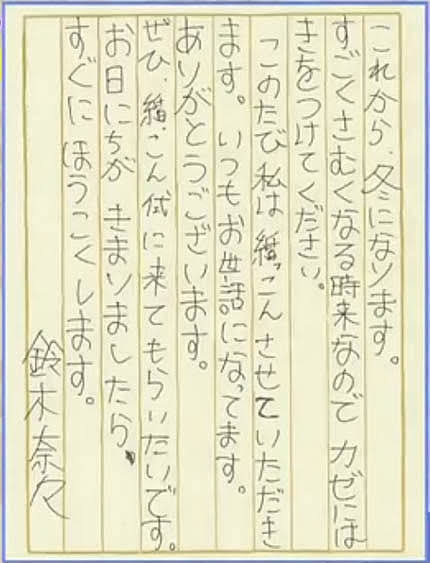 これから、冬になります。
すごくさむくなる時来なので カゼには
きをつけてください。
このたび私は結っこん させていただき
ます。 いつもお世話になってます。
ありがとうございます。
ぜひ、結っこん式に来てもらいたいです。
お日にちが きまりましたら、
すぐに ほうこくします。
鈴木奈々